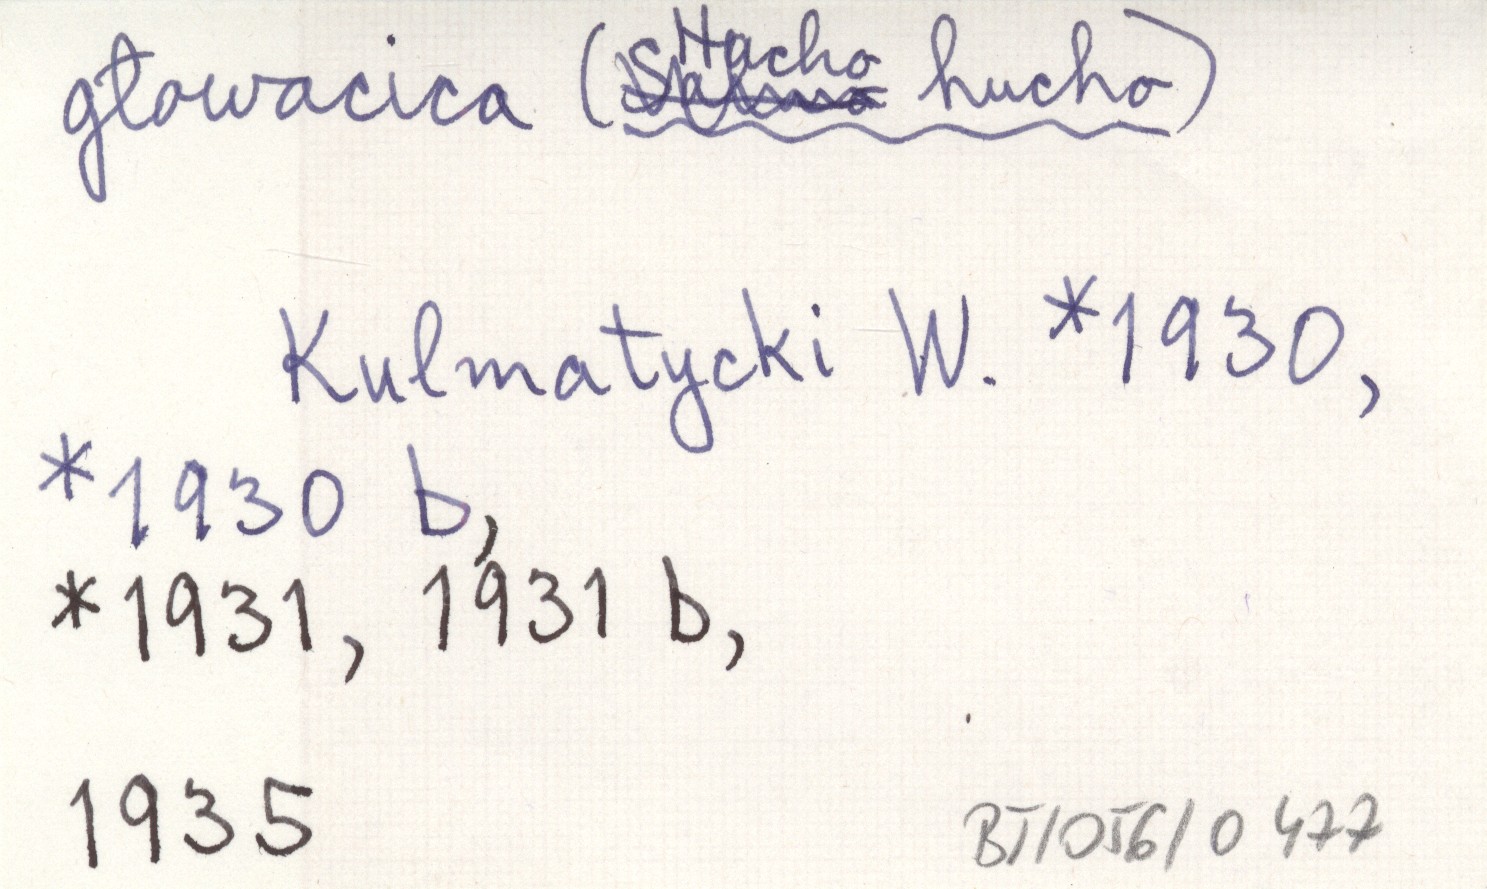 głowacica (Hucho hucho)
Kulmatycki W. *1930,
*1930 b,
*1931, 1931 b,
1935
BT/056/0 477